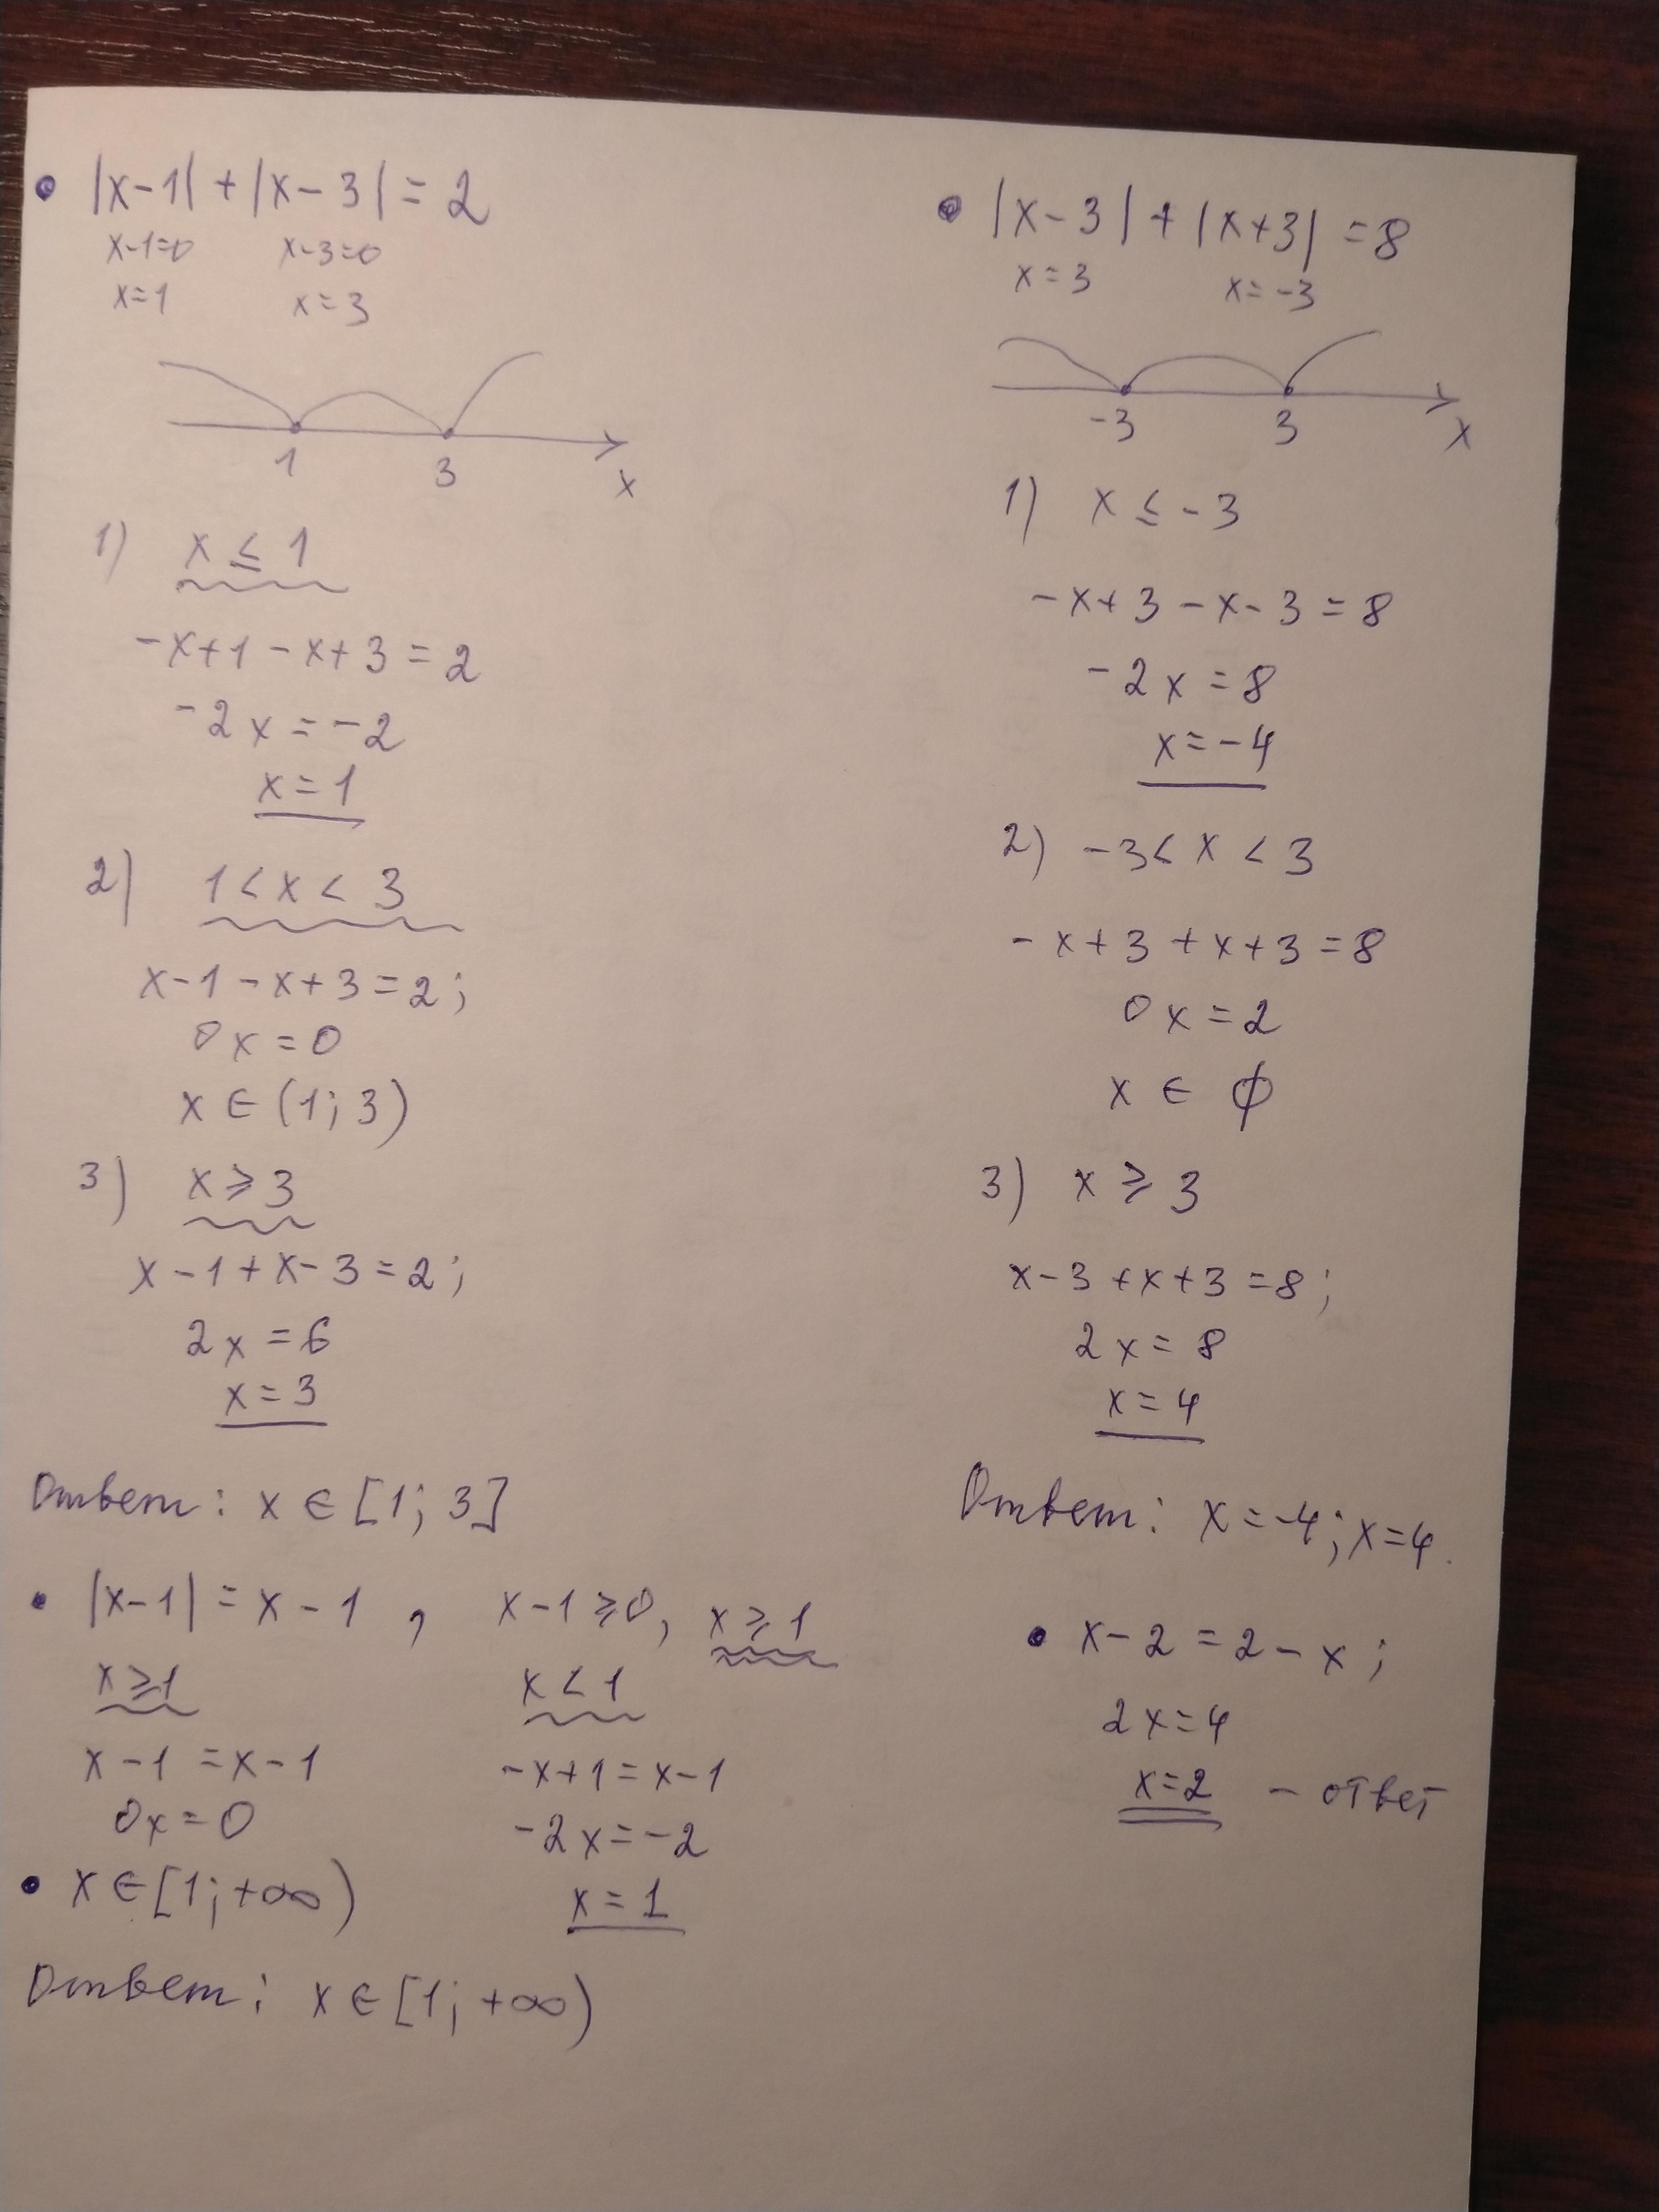 • |x-1| + |x-3| = 2
x-1=0 x-3=0
x=1 x=3
1 3 x
1) x ≤ 1
-x+1-x+3=2
-2x=-2
x=1
2) 1<x<3
x-1-x+3=2;
0x=0
x∈(1;3)
3) x⩾3
x-1+x-3=2;
2x=6
x=3
Ответ: x∈[1;3]
• |x-3| + |x+3| =8
x=3 x=-3
-3 3 x
1) x ≤ -3
-x+3-x-3=8
-2x=8
x=-4
2) -3<x<3
-x+3+x+3=8
0x=2
x∈∅
3) x⩾3
x-3+x+3=8;
2x=8
x=4
Ответ: x=-4; x=4.
• |x-1| = x-1, x-1⩾0, x⩾1
x⩾1 x<1
x-1=x-1 -x+1=x-1
0x=0 -2x=-2
• x∈[1;+∞) x=1
Ответ: x∈[1;+∞)
• x-2=2-x;
2x=4
x=2 - ответ